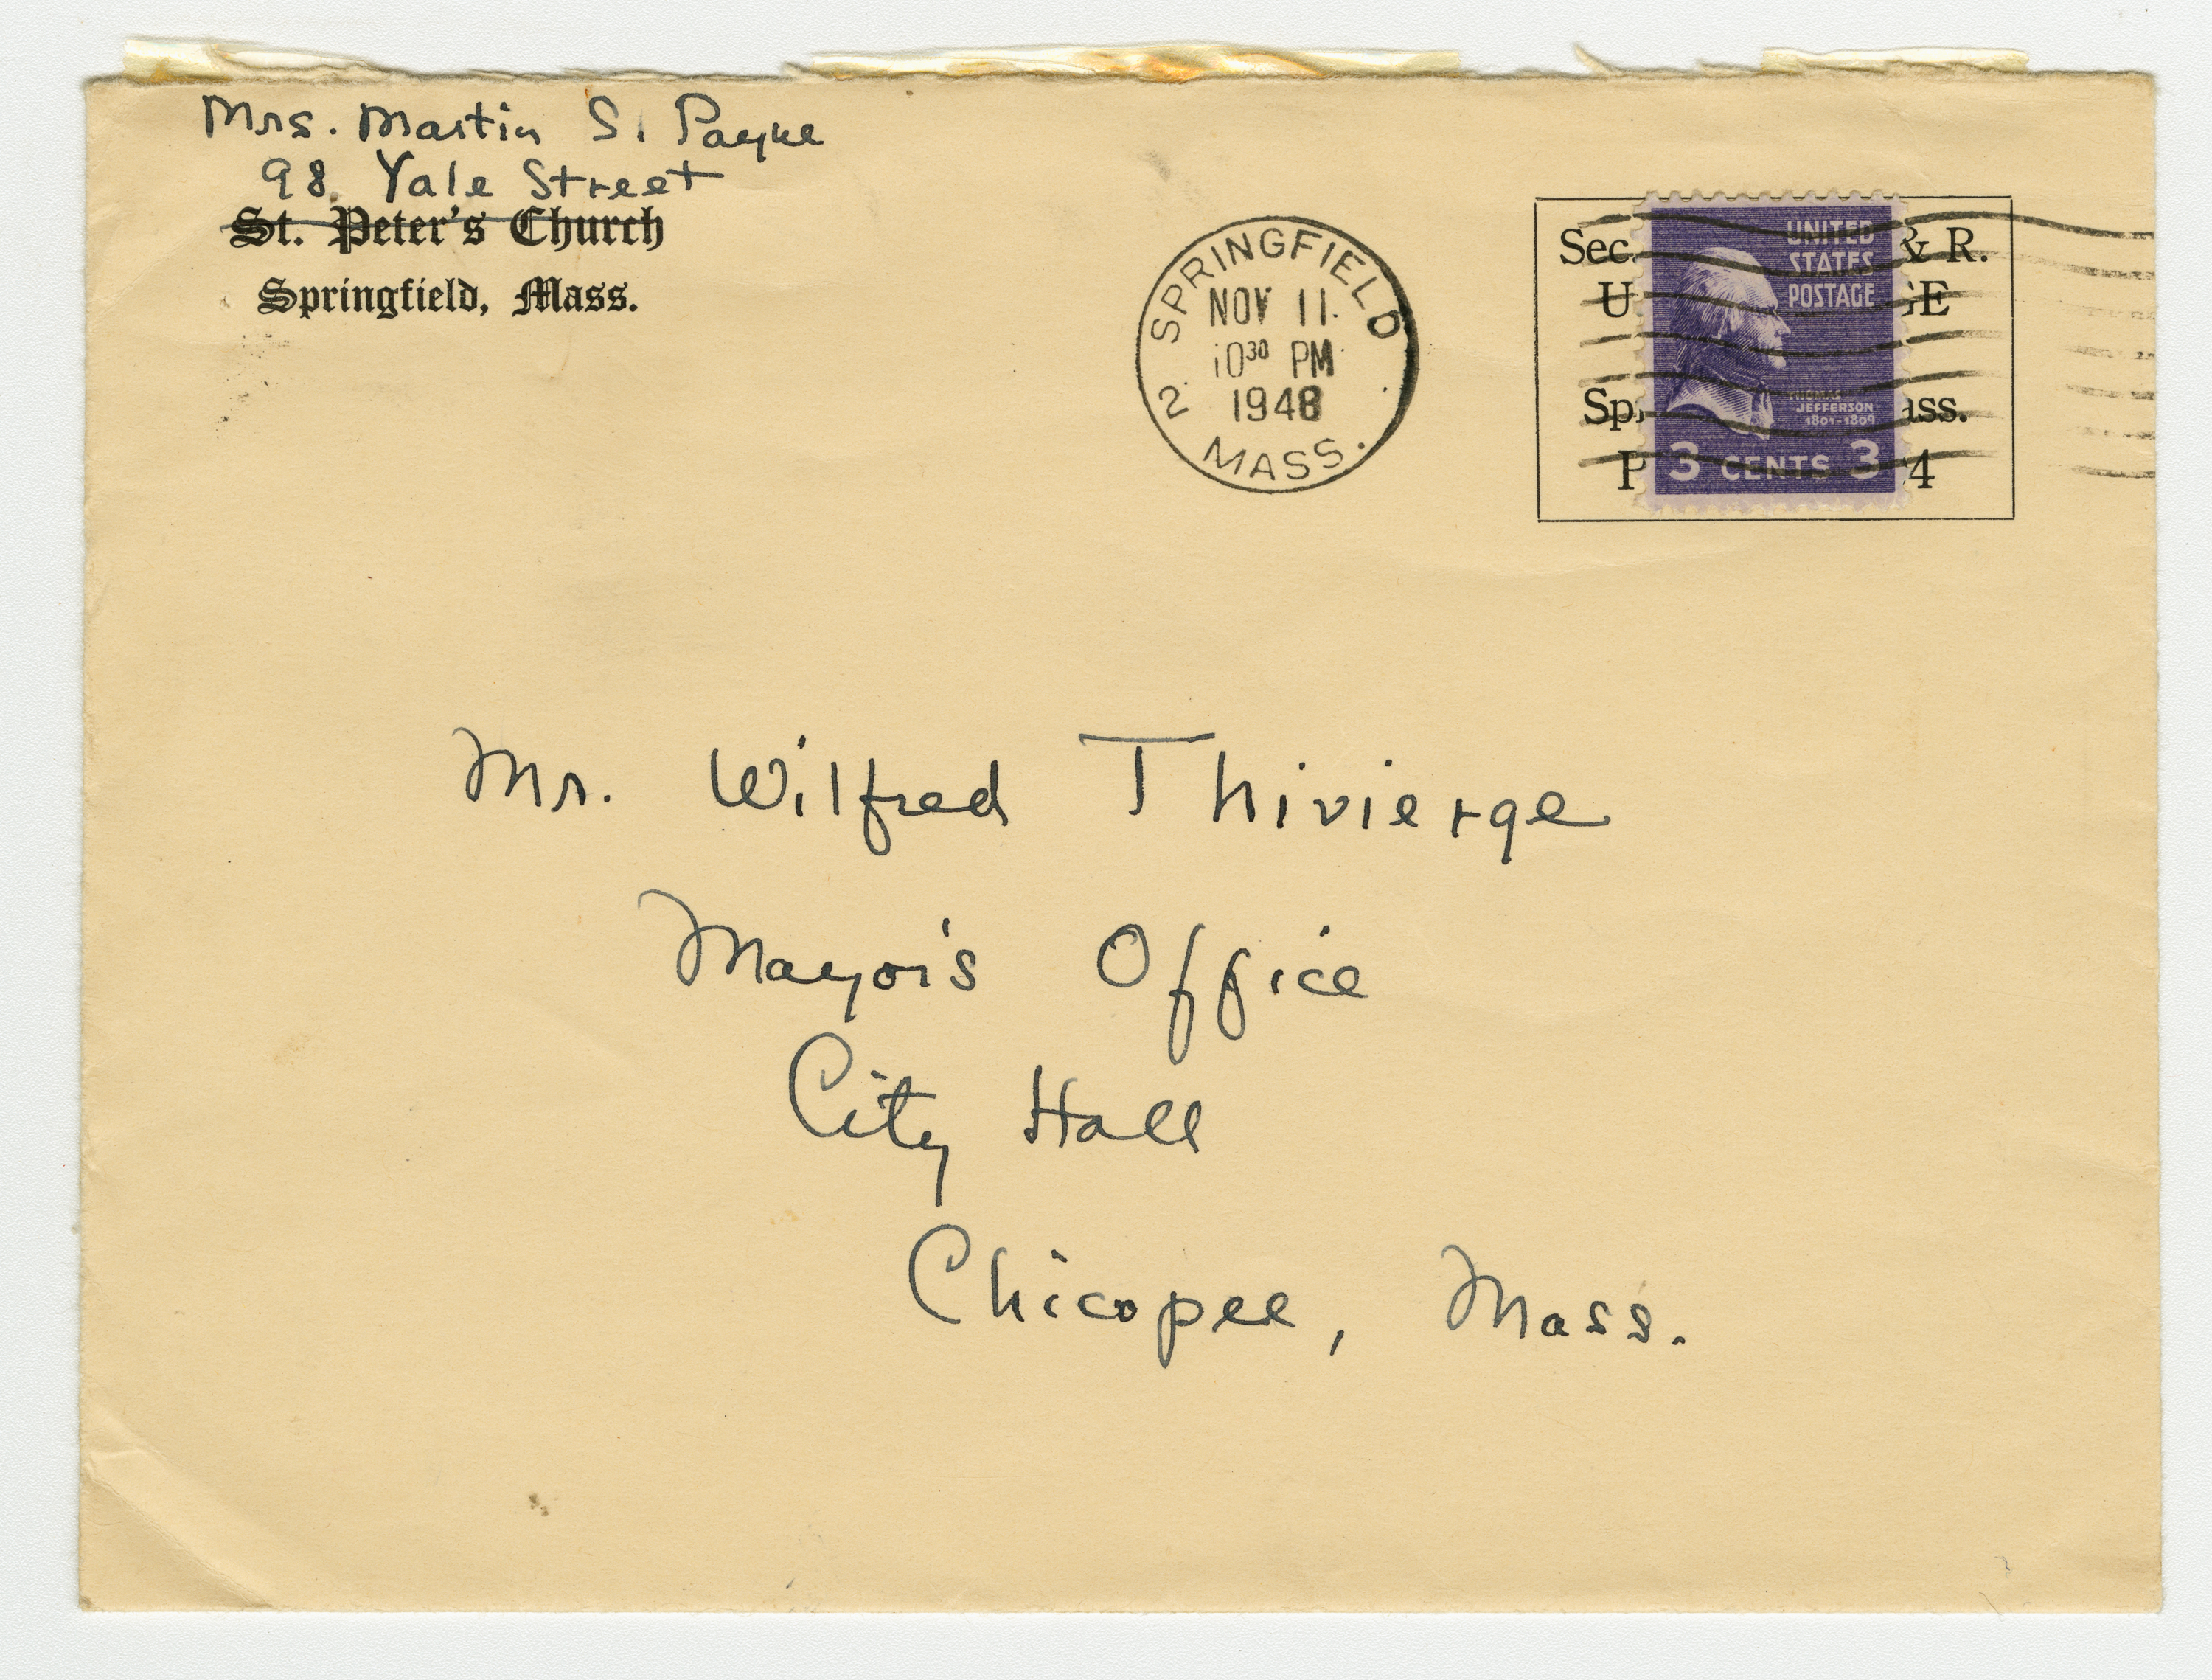 Mrs. Martin S. Payne
98 Yale Street
St. Peter's Church
Springfield, Mass.
SPRINGFIELD
NOV 11
10³⁰ PM
1948
2
MASS.
Sec. & R.
UNITED
STATES
POSTAGE
THOMAS
JEFFERSON
1801-1809
3 CENTS 3
Mr. Wilfred Thivierge
Mayor's Office
City Hall
Chicopee, Mass.